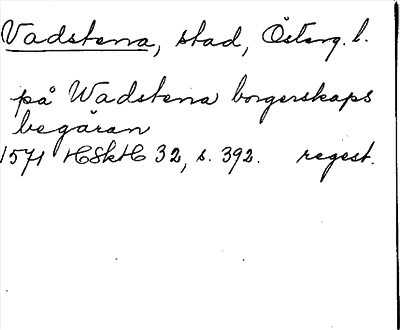 Vadstena, stad, Österg. l.
på Wadstena borgerskaps
begäran
1571 HSkH 32, s. 392. regest.